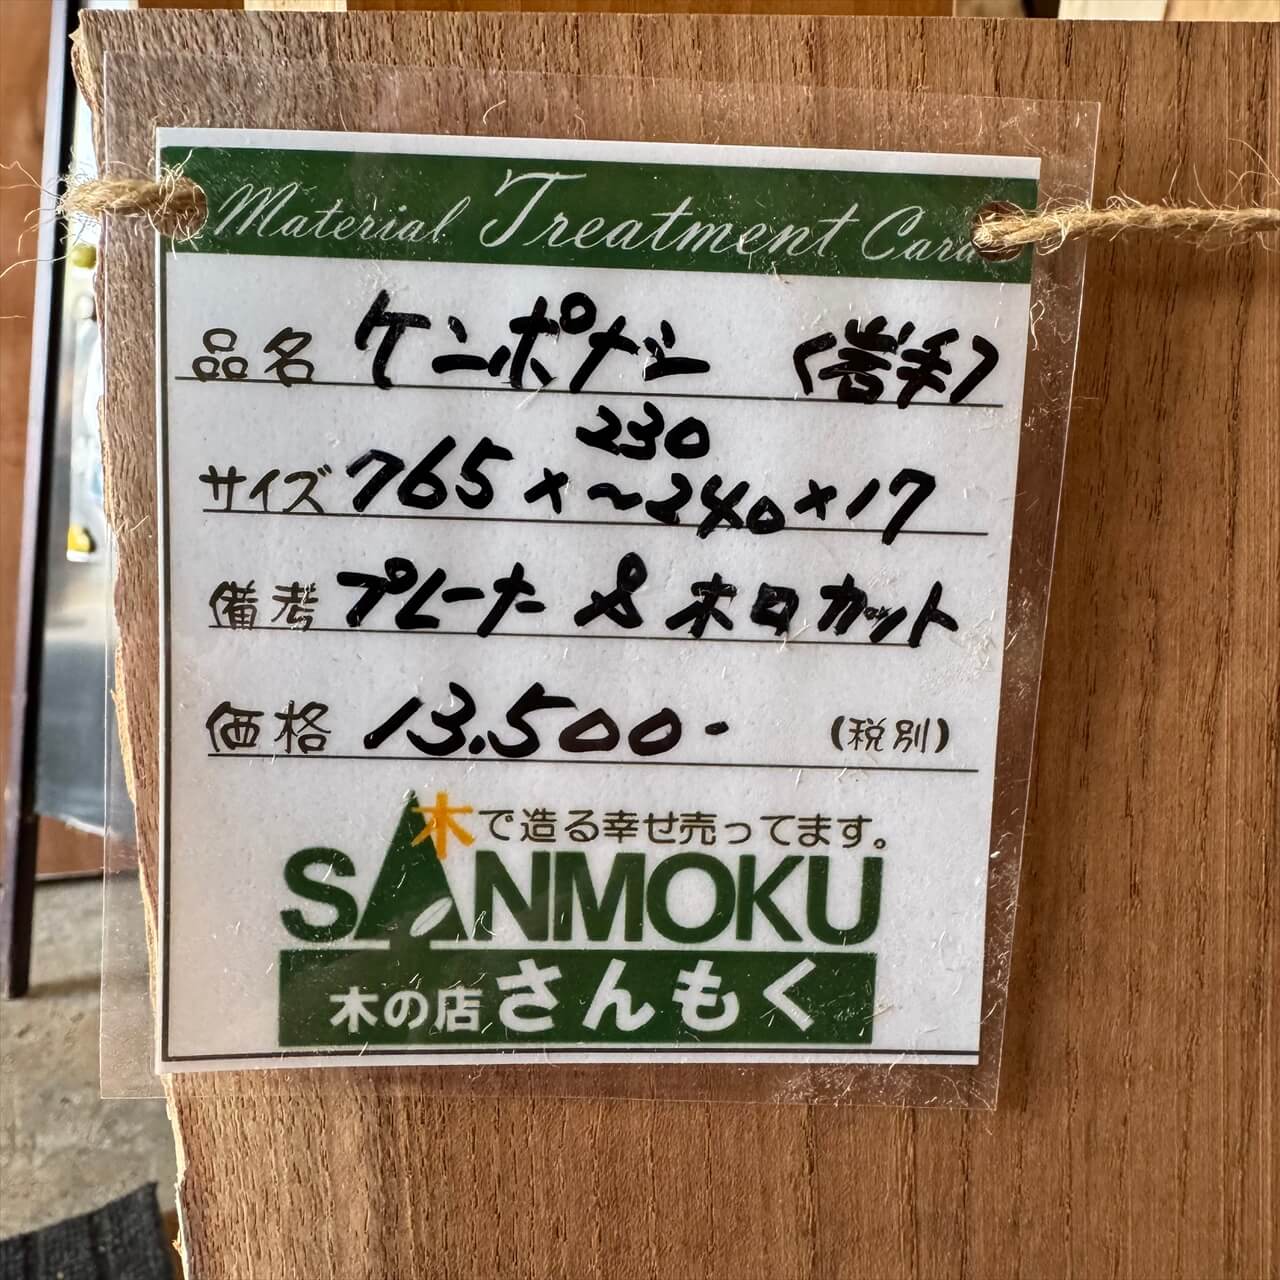 Material Treatment Card
品名 ケンポナシ (岩手)
230
サイズ 765×~240×17
備考 プレーナー & 木口カット
価格 13,500- (税別)
木で造る幸せ売ってます。
SANMOKU
木の店さんもく